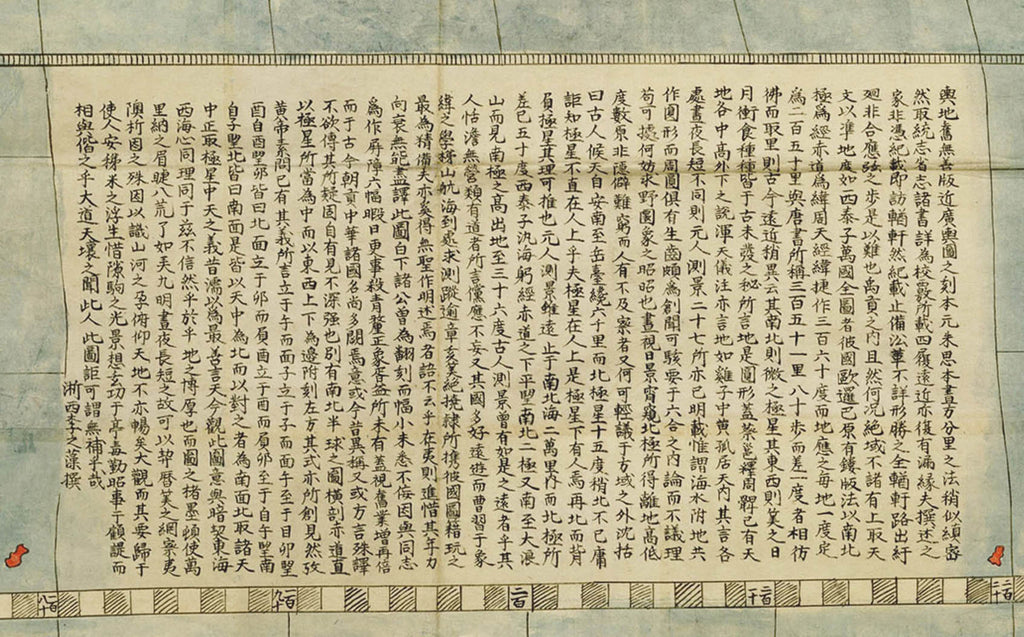 輿地舊無善版近廣輿圖之刻本元朱思本畫方分里之法稍似縝密
然取統志省志諸書詳為校覈所載四履遠近亦復有漏緣夫撰述之
家非憑紀載即訪輶軒然紀載止備沿革不詳形勝之全輶軒路出紆
廻非合應弦之步是以難也禹貢之內且然何況絕域不諸有上取天
文以準地度如西泰子萬國全圖者彼國歐邏巴原有鏤版法以南北
極為經赤道為緯周天經緯捷作三百六十度而地應之每地一度定
為二百五十里與唐書所稱三百五十一里八十步而差一度者相彷
彿而取里則古今遠近稍異云其南北則徵之極星其東西則筭之日
月衝食種種皆千古未發之秘所言地是圓形蓋蔡邕釋周髀已有天
地各中高外下之說渾天儀注亦言地如雞子中黃孤居天內其言各
處晝夜長短不同則元人測景二十七所亦已明載惟謂海水附地共
作圓形而周圓俱有生齒頗為創聞可駭要于六合之內論而不議理
苟可據何妨求野圜象之昭昭也晝視日景宵窺北極所得離地高低
度數原非隱僻難窮而人有不及察者又何可輕議于方域之外沈括
曰古人候天自安南至岳臺纔六千里而北極星十五度稍北不已庸
詎知極星不直在人上乎夫極星在人上是極星下有人焉再北而背
負極星其理可推也元人測景雖遠止于南北海二萬里內而北極所
差已五十度西泰子汎海躬經赤道之下平望南北二極又南至大浪
山而見南極之高出地至三十六度古人測景曾有如是之遠者乎其
人恬澹無營類有道者所言儻應不妄又其國多好遠遊而曹習于象
緯之學梯山航海到處求測蹤逾章亥筭絕撓隸所携彼國圖籍玩之
最為精備夫亦奚得無聖作明述焉者諺不云乎在夷則進惜其年力
向衰無能盡譯此圖白下諸公曾為翻刻而幅小未悉不佞因與同志
為作屏障六幅暇日更事殺青釐正象胥益所未有蓋視舊業增再倍
而于古今朝貢中華諸國名尚多闕焉意或今昔異稱又或方言殊譯
不欲傳其所疑固自有見不深強也別有南北半球之圖橫剖赤道直
以極星所當為中而以東西上下為邊附刻左方其式亦所創見然攷
黃帝素問已有其義所言立于午而面子立于子而面午至于自卯望
酉自酉望卯皆曰北面立于卯而負酉立于酉而負卯至于自午望南
自子望北皆曰南面是皆以天中為北而以對之者為南面北取諸天
中正取極星中天之義昔儒以為最善言天今觀此圖意與暗契東海
西海心同理同于茲不信然乎於乎地之博厚也而圖之楮墨頓使萬
里納之眉睫八荒了如弄丸明晝夜長短之故可以挈曆筭之綱察夷
隩析因之殊因以識山河之孕俯仰天地不亦暢矣大觀而其要歸于
使人安稊米之浮生惜隙駒之光景想玄功于亭毒勤昭事于顧諟而
相與偕之乎大道天壤之間此人此圖詎可謂無補乎哉
浙西李之藻撰
百八十
百九十
二百
二百一十
二百二十